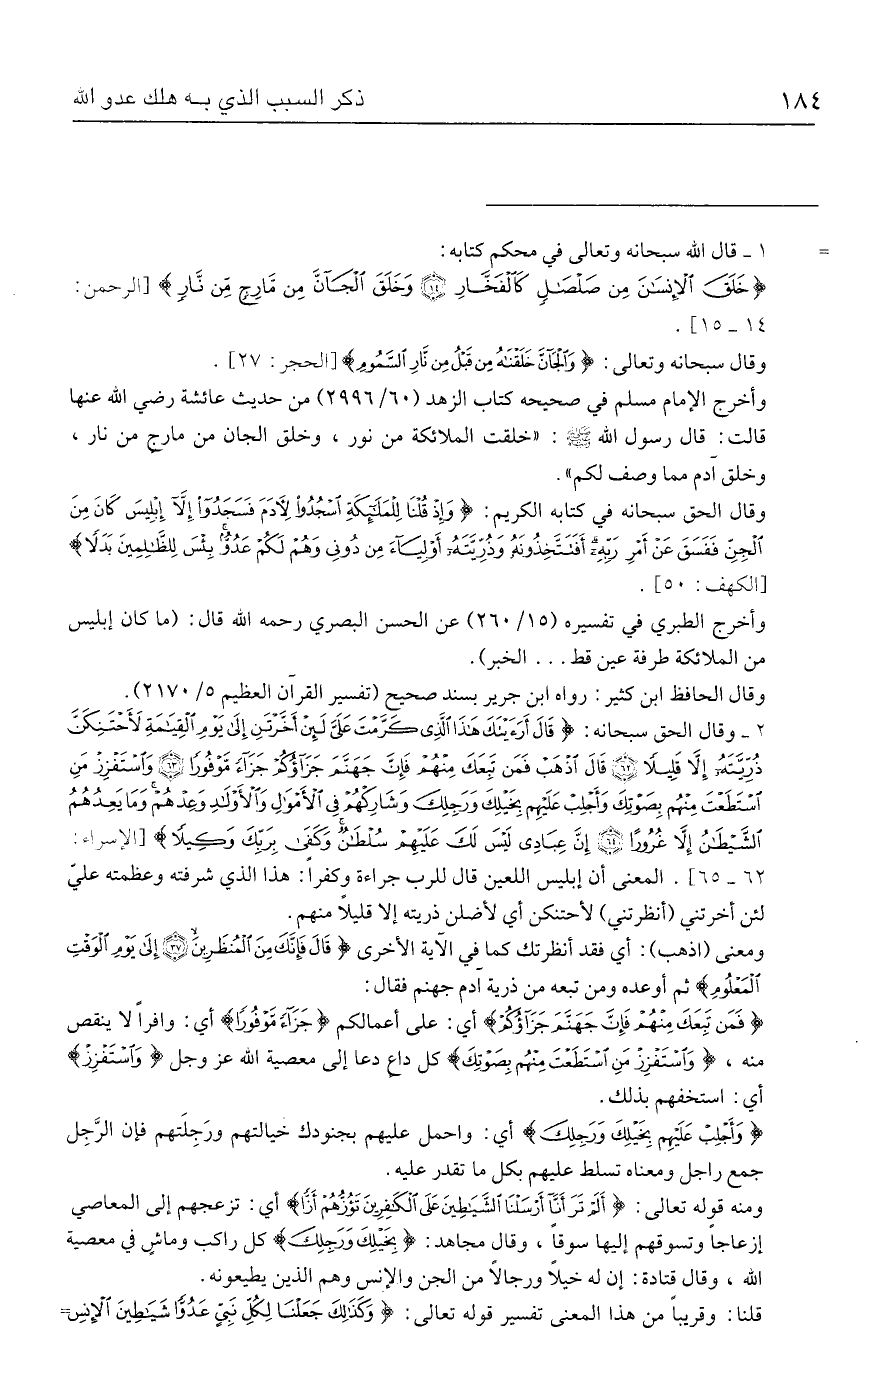 ١٨٤ ذكر السبب الذي بـه هلك عدو الله
= ١ ـ قال الله سبحانه وتعالى في محكم كتابه :
﴿ خَلَقَ ٱلْإِنسَٰنَ مِن صَلْصَٰلٍ كَٱلْفَخَّارِ ١٤ وَخَلَقَ ٱلْجَآنَّ مِن مَّارِجٍ مِّن نَّارٍ ﴾ [الرحمن :
١٤ ـ ١٥] .
وقال سبحانه وتعالى : ﴿ وَٱلْجَآنَّ خَلَقْنَٰهُ مِن قَبْلُ مِن نَّارِ ٱلسَّمُومِ ﴾ [الحجر : ٢٧] .
وأخرج الإمام مسلم في صحيحه كتاب الزهد (٦٠/ ٢٩٩٦) من حديث عائشة رضي الله عنها
قالت : قال رسول الله ﷺ : «خلقت الملائكة من نور ، وخلق الجان من مارج من نار ،
وخلق آدم مما وصف لكم» .
وقال الحق سبحانه في كتابه الكريم : ﴿ وَإِذْ قُلْنَا لِلْمَلَٰٓئِكَةِ ٱسْجُدُوا۟ لِءَادَمَ فَسَجَدُوٓا۟ إِلَّآ إِبْلِيسَ كَانَ مِنَ
ٱلْجِنِّ فَفَسَقَ عَنْ أَمْرِ رَبِّهِۦٓ أَفَتَتَّخِذُونَهُۥ وَذُرِّيَّتَهُۥٓ أَوْلِيَآءَ مِن دُونِى وَهُمْ لَكُمْ عَدُوٌّۢ بِئْسَ لِلظَّٰلِمِينَ بَدَلًا ﴾
[الكهف : ٥٠] .
وأخرج الطبري في تفسيره (١٥/ ٢٦٠) عن الحسن البصري رحمه الله قال : (ما كان إبليس
من الملائكة طرفة عين قط . . . الخبر) .
وقال الحافظ ابن كثير : رواه ابن جرير بسند صحيح (تفسير القرآن العظيم ٥/ ٢١٧٠) .
٢ ـ وقال الحق سبحانه : ﴿ قَالَ أَرَءَيْتَكَ هَٰذَا ٱلَّذِى كَرَّمْتَ عَلَىَّ لَئِنْ أَخَّرْتَنِ إِلَىٰ يَوْمِ ٱلْقِيَٰمَةِ لَأَحْتَنِكَنَّ
ذُرِّيَّتَهُۥٓ إِلَّا قَلِيلًا ٦٢ قَالَ ٱذْهَبْ فَمَن تَبِعَكَ مِنْهُمْ فَإِنَّ جَهَنَّمَ جَزَآؤُكُمْ جَزَآءً مَّوْفُورًا ٦٣ وَٱسْتَفْزِزْ مَنِ
ٱسْتَطَعْتَ مِنْهُم بِصَوْتِكَ وَأَجْلِبْ عَلَيْهِم بِخَيْلِكَ وَرَجِلِكَ وَشَارِكْهُمْ فِى ٱلْأَمْوَٰلِ وَٱلْأَوْلَٰدِ وَعِدْهُمْ وَمَا يَعِدُهُمُ
ٱلشَّيْطَٰنُ إِلَّا غُرُورًا ٦٤ إِنَّ عِبَادِى لَيْسَ لَكَ عَلَيْهِمْ سُلْطَٰنٌ وَكَفَىٰ بِرَبِّكَ وَكِيلًا ﴾ [الإسراء :
٦٢ ـ ٦٥] . المعنى أن إبليس اللعين قال للرب جراءة وكفراً : هذا الذي شرفته وعظمته عليّ
لئن أخرتني (أنظرتني) لأحتنكن أي لأضلن ذريته إلا قليلاً منهم .
ومعنى (اذهب) : أي فقد أنظرتك كما في الآية الأخرى ﴿ قَالَ فَإِنَّكَ مِنَ ٱلْمُنظَرِينَ ٣٧ إِلَىٰ يَوْمِ ٱلْوَقْتِ
ٱلْمَعْلُومِ ﴾ ثم أوعده ومن تبعه من ذرية آدم جهنم فقال :
﴿ فَمَن تَبِعَكَ مِنْهُمْ فَإِنَّ جَهَنَّمَ جَزَآؤُكُمْ ﴾ أي : على أعمالكم ﴿ جَزَآءً مَّوْفُورًا ﴾ أي : وافراً لا ينقص
منه ، ﴿ وَٱسْتَفْزِزْ مَنِ ٱسْتَطَعْتَ مِنْهُم بِصَوْتِكَ ﴾ كل داع دعا إلى معصية الله عز وجل ﴿ وَٱسْتَفْزِزْ ﴾
أي : استخفهم بذلك .
﴿ وَأَجْلِبْ عَلَيْهِم بِخَيْلِكَ وَرَجِلِكَ ﴾ أي : واحمل عليهم بجنودك خيالتهم ورَجِلَتهم فإن الرَّجِل
جمع راجل ومعناه تسلط عليهم بكل ما تقدر عليه .
ومنه قوله تعالى : ﴿ أَلَمْ تَرَ أَنَّآ أَرْسَلْنَا ٱلشَّيَٰطِينَ عَلَى ٱلْكَٰفِرِينَ تَؤُزُّهُمْ أَزًّا ﴾ أي : تزعجهم إلى المعاصي
إزعاجاً وتسوقهم إليها سوقاً ، وقال مجاهد : ﴿ بِخَيْلِكَ وَرَجِلِكَ ﴾ كل راكب وماشٍ في معصية
الله ، وقال قتادة : إن له خيلاً ورجالاً من الجن والإنس وهم الذين يطيعونه .
قلنا : وقريباً من هذا المعنى تفسير قوله تعالى : ﴿ وَكَذَٰلِكَ جَعَلْنَا لِكُلِّ نَبِىٍّ عَدُوًّا شَيَٰطِينَ ٱلْإِنسِ =